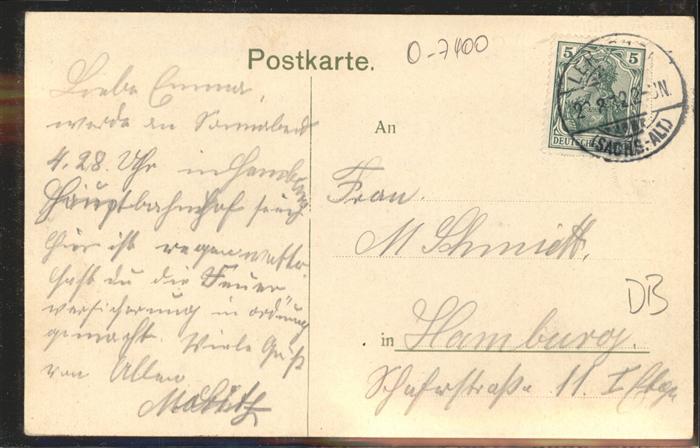 Postkarte.
O-7400
Liebe Emma,
werde an Sonnabend
4.28. Uhr in Hamburg
Hauptbahnhof sein
hier ist regenwetter
hast du die Feuer
versicherung in ordnung
gemacht. Viele Grüße
von Allen
An
Frau.
M Schmidt.
in Hamburg.
Schäferstraße 11. I Etage
DB
5 5
DEUTSCHES
(SACHS.-ALT.)